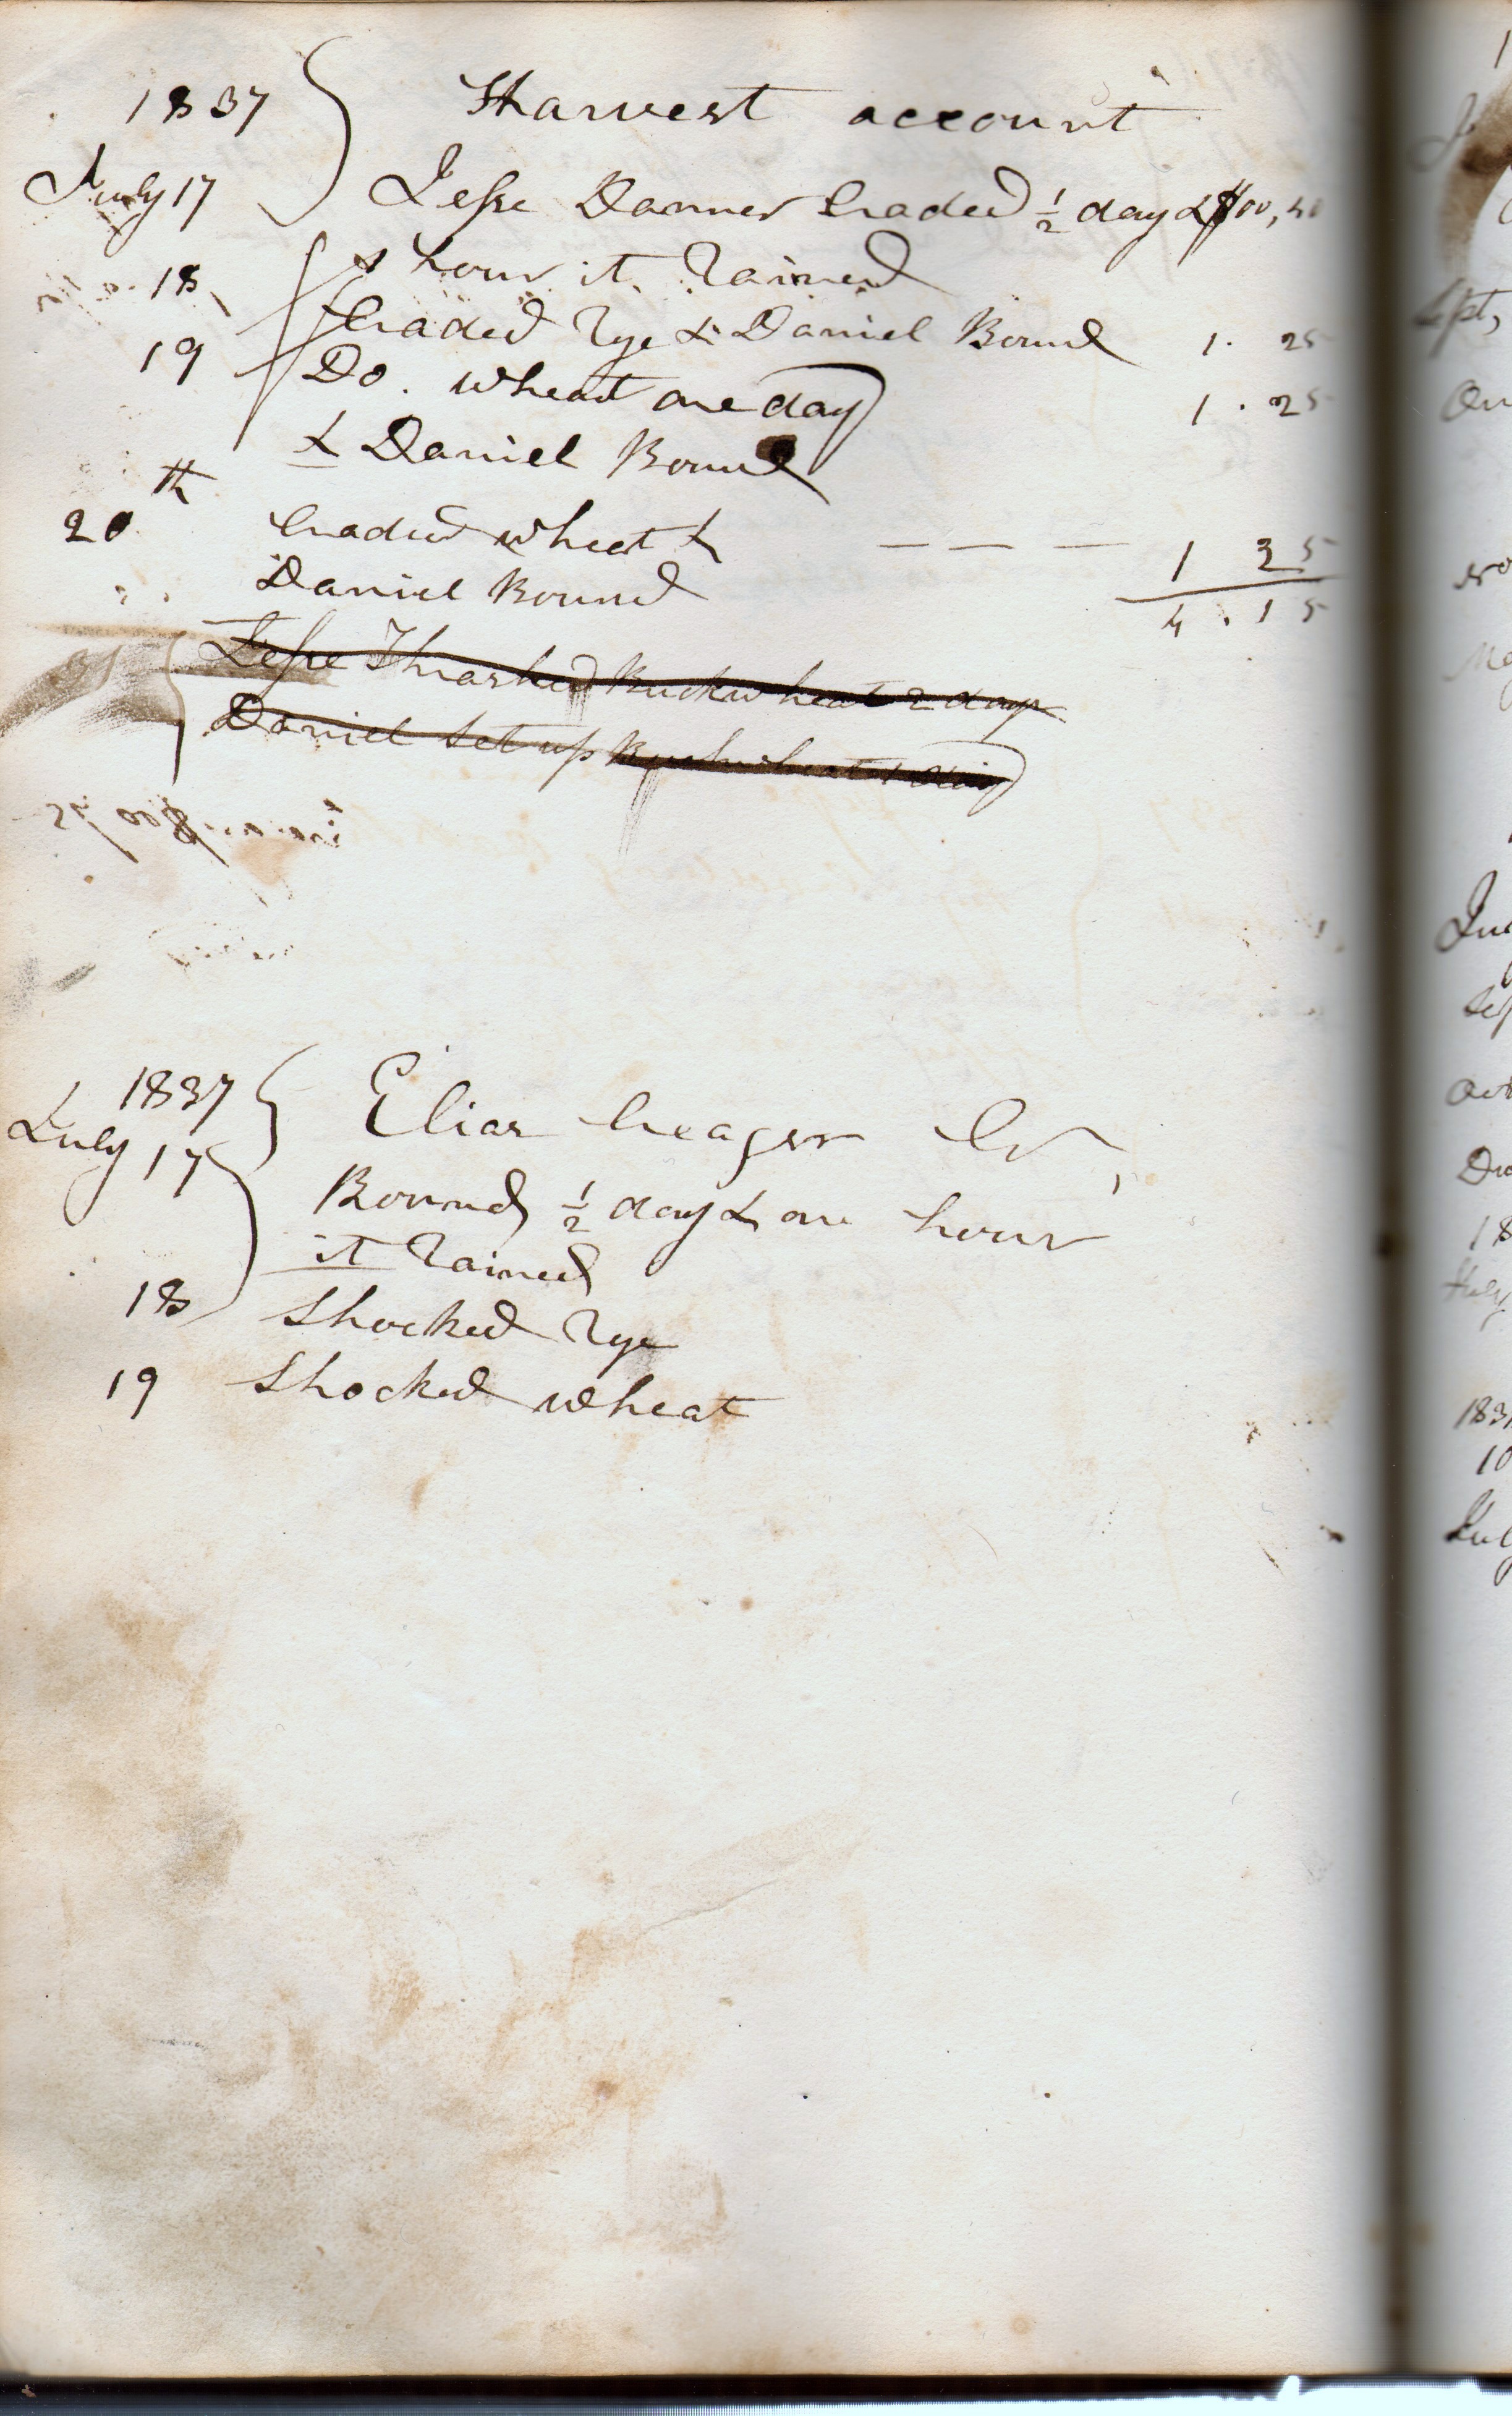 1837 Harvest account
July 17 Jesse Danner Craded ½ day & $00,50
1 hour it Rained
18 Craded Rye & Daniel Bound 1. 25
19 Do. wheat one day 1. 25
& Daniel Bound
20th Craded wheat & — — — 1 25
Daniel Bound 4. 15
Jesse Thrashed Buckwheat 2 days
Daniel Set up Buckwheat 1 day
1837 Elias Creager Cr,
July 17 Bound ½ day & one hour
it Rained
18 Shocked Rye
19 Shocked wheat
Sept,